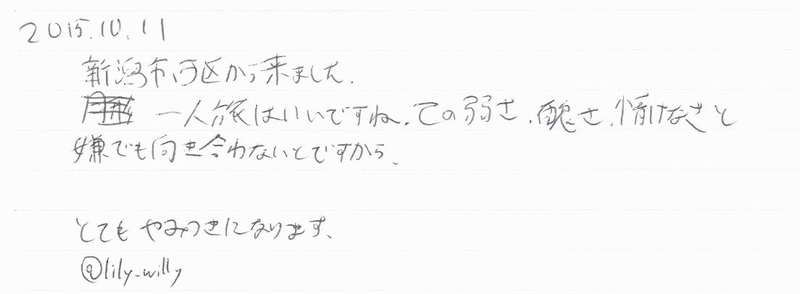 2015.10.11
新潟市西区から来ました.
一人旅はいいですね.その弱さ.醜さ.情けなさと
嫌でも向き合わないとですから.
とてもやみつきになります.
@lily_willy